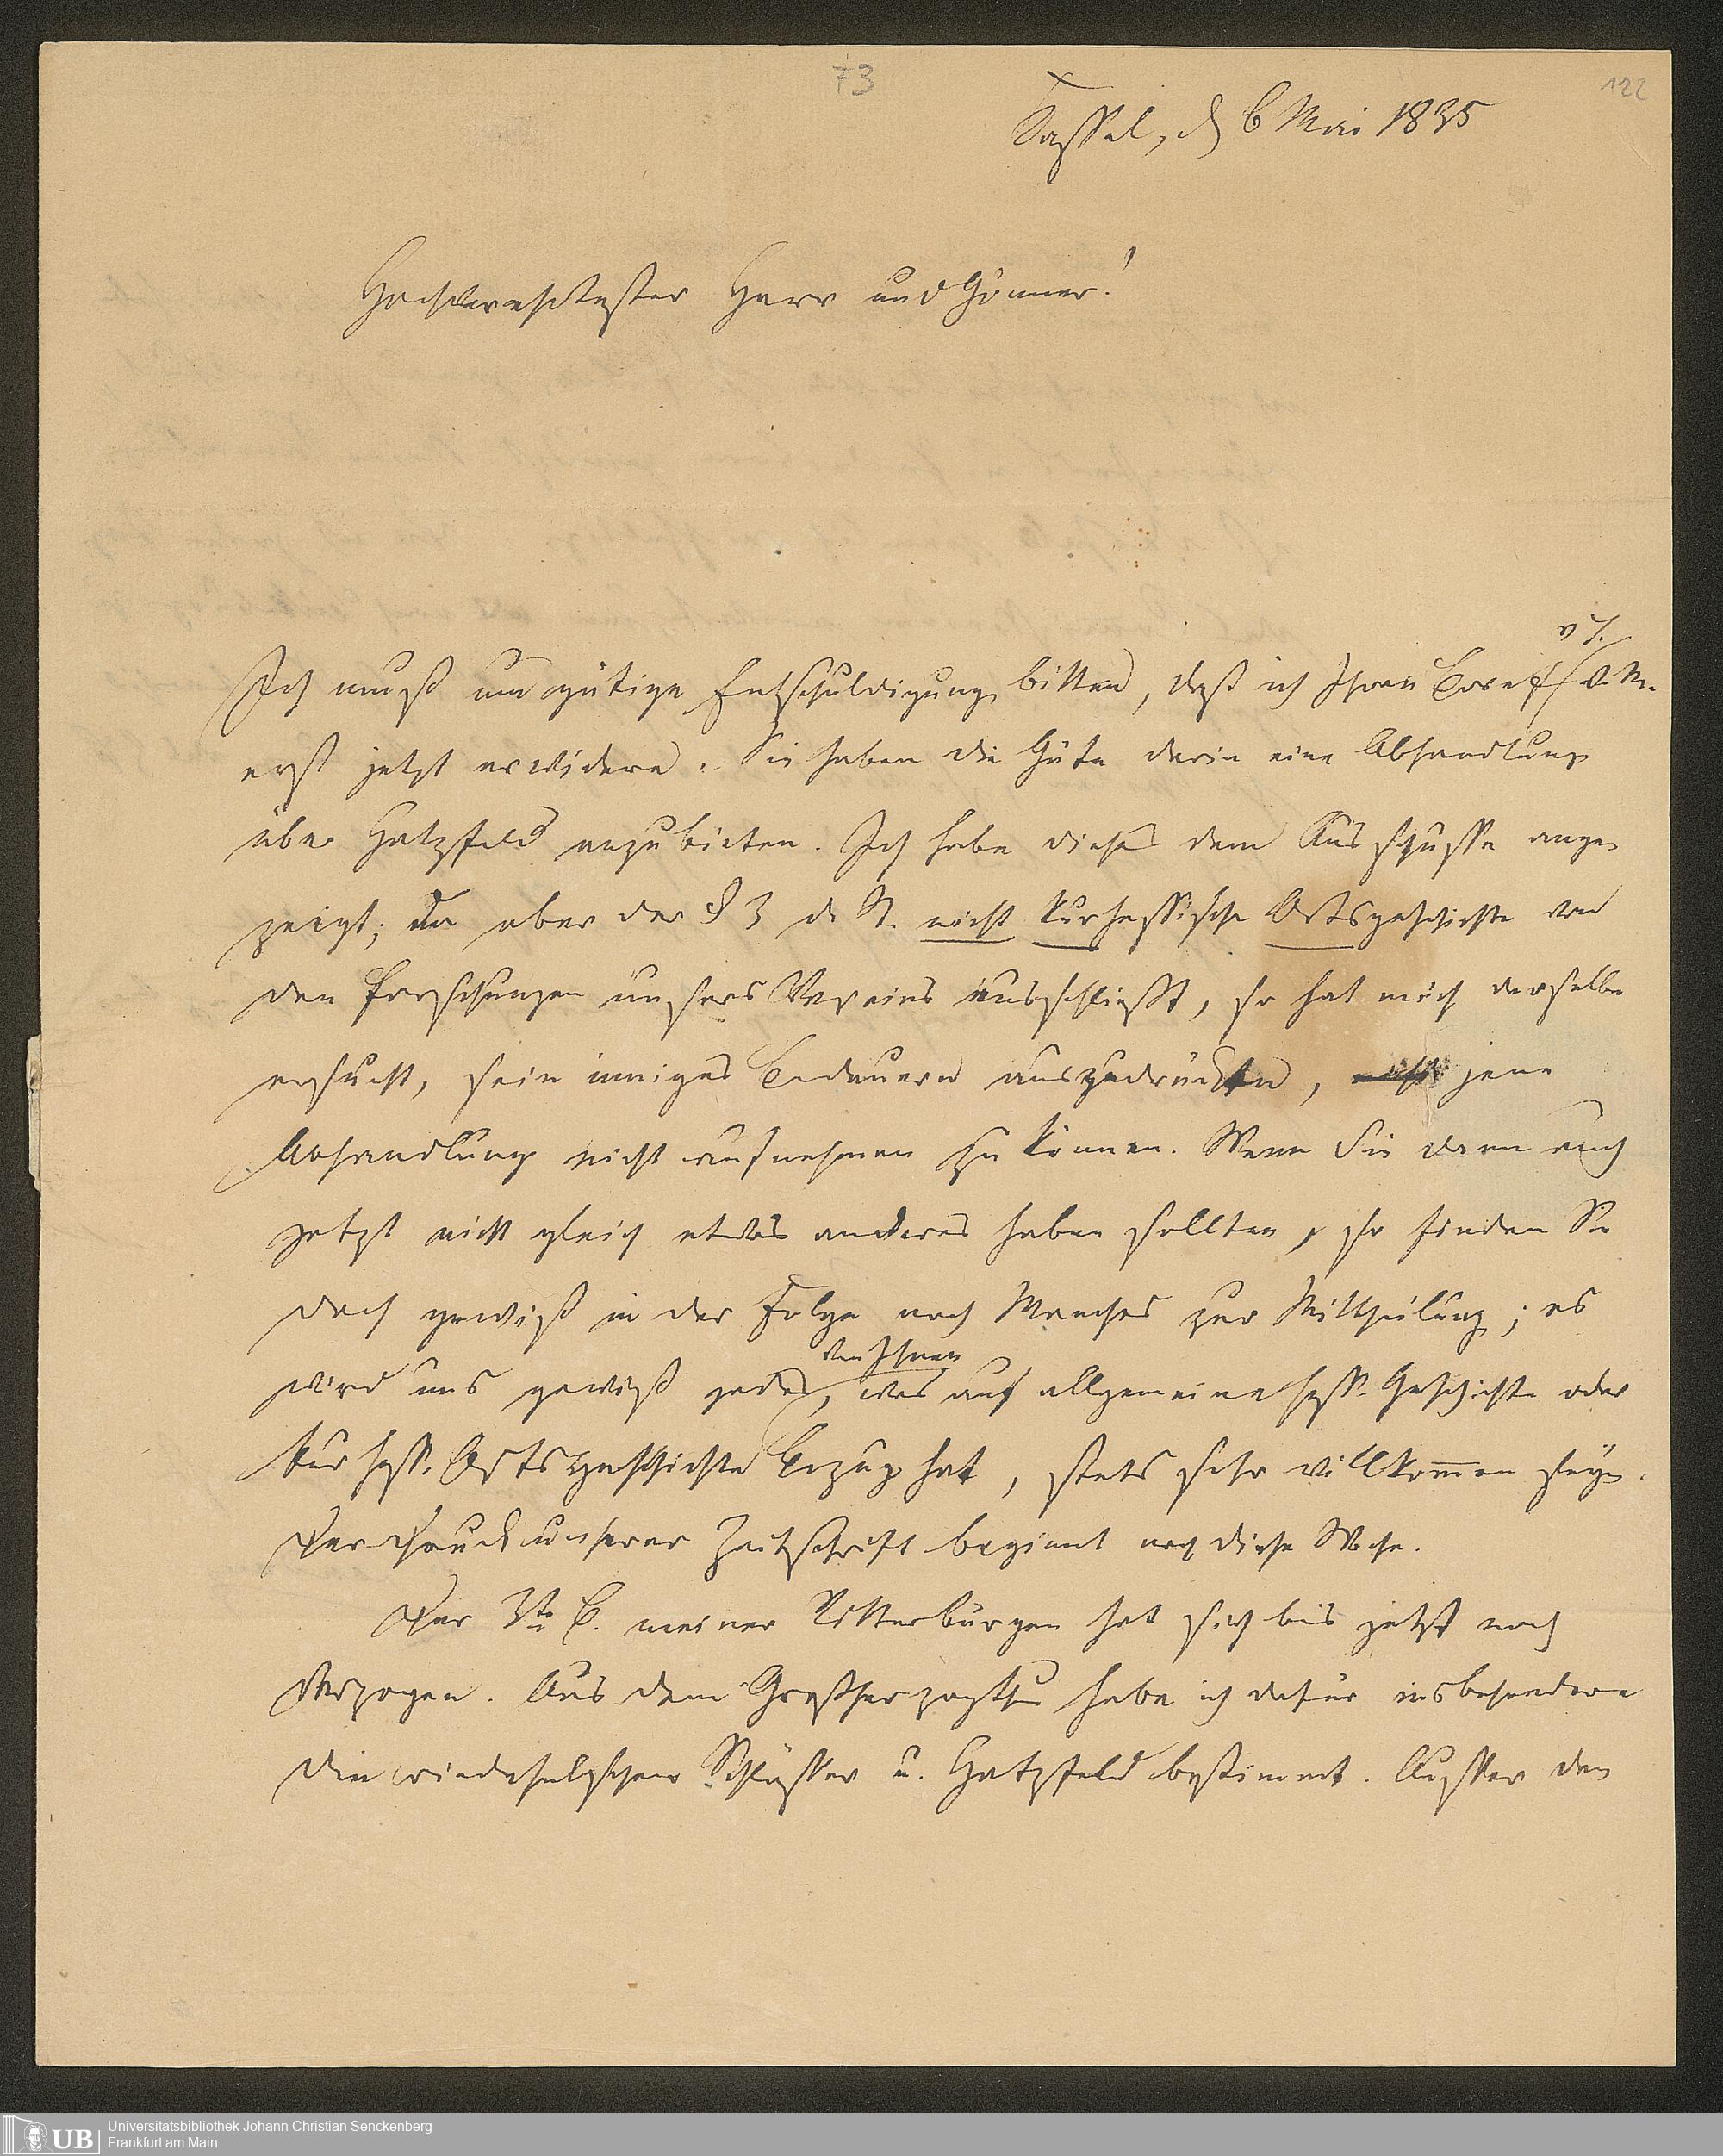 73
122
Kassel, d 6 Mai 1835
Hochverehrtester Herr und Gönner!
v 7.
Ich muß um gütige Entschuldigung bitten, daß ich Ihren Brief d. M.
erst jetzt erwidere. Sie haben die Güte darin eine Abhandlung
über Hatzfeld anzubieten. Ich habe dieses dem Ausschusse ange-
zeigt; da aber der § 3 d. St. nicht kurhessische Ortsgeschichte von
den Forschungen unsers Vereins ausschließt, so hat mich derselbe
ersucht, sein inniges Bedauern auszudrücken, jene
Abhandlung nicht aufnehmen zu können. Wenn Sie denn auch
jetzt nicht gleich etwas anderes haben sollten, so finden Sie
doch gewiß in der Folge noch Manches zur Mittheilung; es
von Ihnen
wird uns gewiß jedes, was auf allgemeine hess. Geschichte oder
kurhess. Ortsgeschichte Bezug hat, stets sehr willkommen seyn.
Der Druck unserer Zeitschrift beginnt noch diese Woche.
Der 3te B. meiner Ritterburgen hat sich bis jetzt noch
verzogen. Aus dem Großherzogthu habe ich dafür insbesondere
die riedeselschen Schlösser u. Hatzfeld bestimmt. Ausser den
UB
Universitätsbibliothek Johann Christian Senckenberg
Frankfurt am Main